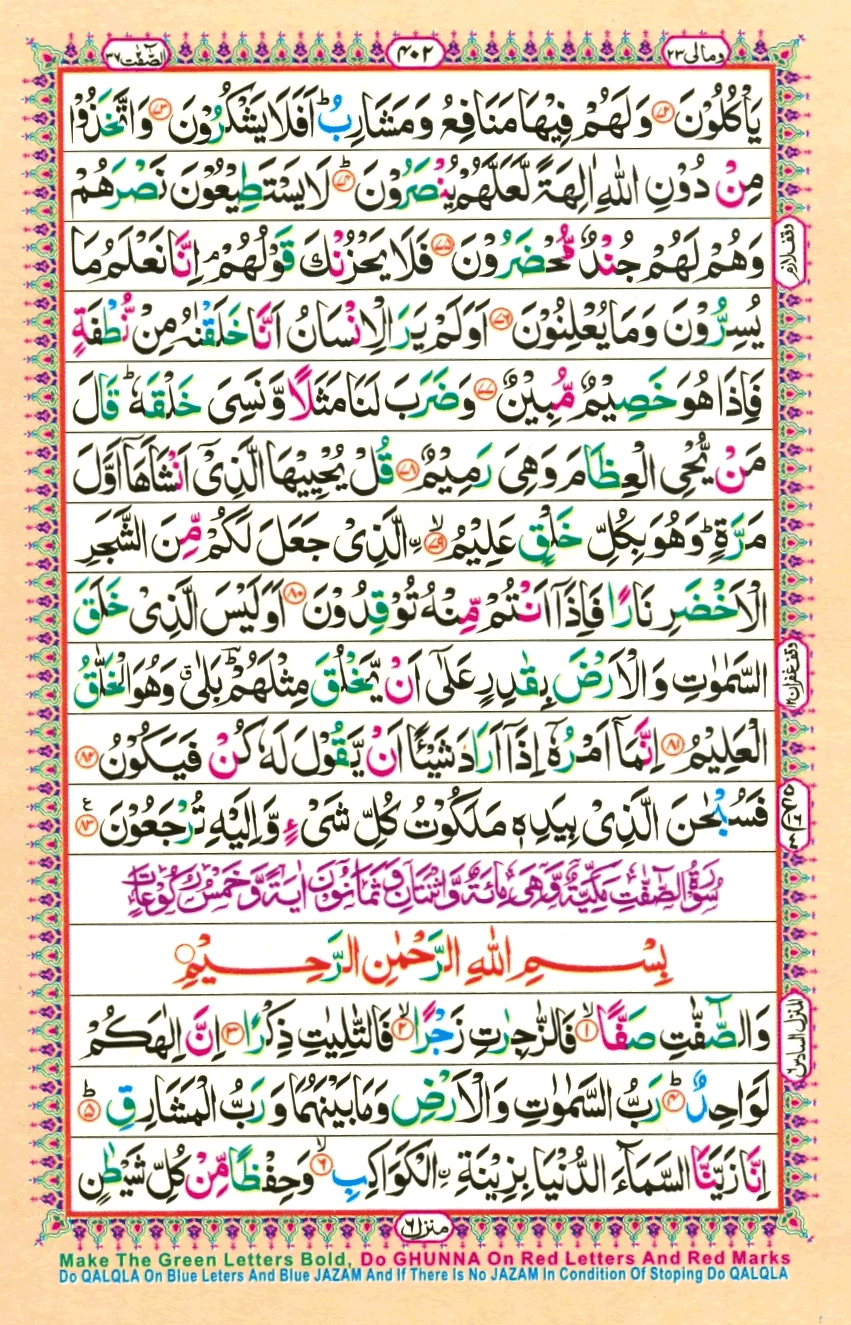 الصّٰٓفّٰت ٣٧
٤٠٢
ومالی ٢٣
یَاْكُلُوْنَ ۝٧٢ وَ لَهُمْ فِیْهَا مَنَافِعُ وَ مَشَارِبُ ؕ اَفَلَا یَشْكُرُوْنَ ۝٧٣ وَ اتَّخَذُوْا
مِنْ دُوْنِ اللّٰهِ اٰلِهَةً لَّعَلَّهُمْ یُنْصَرُوْنَ ۝٧٤ؕ لَا یَسْتَطِیْعُوْنَ نَصْرَهُمْ
وَ هُمْ لَهُمْ جُنْدٌ مُّحْضَرُوْنَ ۝٧٥ فَلَا یَحْزُنْكَ قَوْلُهُمْ ۘ اِنَّا نَعْلَمُ مَا
یُسِرُّوْنَ وَ مَا یُعْلِنُوْنَ ۝٧٦ اَوَ لَمْ یَرَ الْاِنْسَانُ اَنَّا خَلَقْنٰهُ مِنْ نُّطْفَةٍ
فَاِذَا هُوَ خَصِیْمٌ مُّبِیْنٌ ۝٧٧ وَ ضَرَبَ لَنَا مَثَلًا وَّ نَسِیَ خَلْقَهٗ ؕ قَالَ
مَنْ یُّحْیِ الْعِظَامَ وَ هِیَ رَمِیْمٌ ۝٧٨ قُلْ یُحْیِیْهَا الَّذِیْۤ اَنْشَاَهَاۤ اَوَّلَ
مَرَّةٍ ؕ وَ هُوَ بِكُلِّ خَلْقٍ عَلِیْمُ ۝٧٩ۙ ﰳالَّذِیْ جَعَلَ لَكُمْ مِّنَ الشَّجَرِ
الْاَخْضَرِ نَارًا فَاِذَاۤ اَنْتُمْ مِّنْهُ تُوْقِدُوْنَ ۝٨٠ اَوَ لَیْسَ الَّذِیْ خَلَقَ
السَّمٰوٰتِ وَ الْاَرْضَ بِقٰدِرٍ عَلٰۤی اَنْ یَّخْلُقَ مِثْلَهُمْ ؕؔ بَلٰی ۗ وَ هُوَ الْخَلّٰقُ
الْعَلِیْمُ ۝٨١ اِنَّمَاۤ اَمْرُهٗۤ اِذَاۤ اَرَادَ شَیْـًٔا اَنْ یَّقُوْلَ لَهٗ كُنْ فَیَكُوْنُ ۝٨٢
فَسُبْحٰنَ الَّذِیْ بِیَدِهٖ مَلَكُوْتُ كُلِّ شَیْءٍ وَّ اِلَیْهِ تُرْجَعُوْنَ ۝٨٣ ع
سُوْرَةُ الصّٰٓفّٰتِ مَكِّیَّةٌ وَّهِیَ مِائَةٌ وَّاثْنَتَانِ وَثَمَانُوْنَ اٰیَةً وَّخَمْسُ رُكُوْعَاتٍ
بِسْمِ اللّٰهِ الرَّحْمٰنِ الرَّحِیْمِ
وَ الصّٰٓفّٰتِ صَفًّا ۝١ۙ فَالزّٰجِرٰتِ زَجْرًا ۝٢ۙ فَالتّٰلِیٰتِ ذِكْرًا ۝٣ۙ اِنَّ اِلٰهَكُمْ
لَوَاحِدٌ ۝٤ؕ رَبُّ السَّمٰوٰتِ وَ الْاَرْضِ وَ مَا بَیْنَهُمَا وَ رَبُّ الْمَشَارِقِ ۝٥ؕ
اِنَّا زَیَّنَّا السَّمَآءَ الدُّنْیَا بِزِیْنَةِ ﰳالْكَوَاكِبِ ۝٦ۙ وَ حِفْظًا مِّنْ كُلِّ شَیْطٰنٍ
وقف لازم
وقف غفران ١٢
المنزل السادس ٦
منزل ٦
Make The Green Letters Bold, Do GHUNNA On Red Letters And Red Marks
Do QALQLA On Blue Leters And Blue JAZAM And If There Is No JAZAM In Condition Of Stoping Do QALQLA